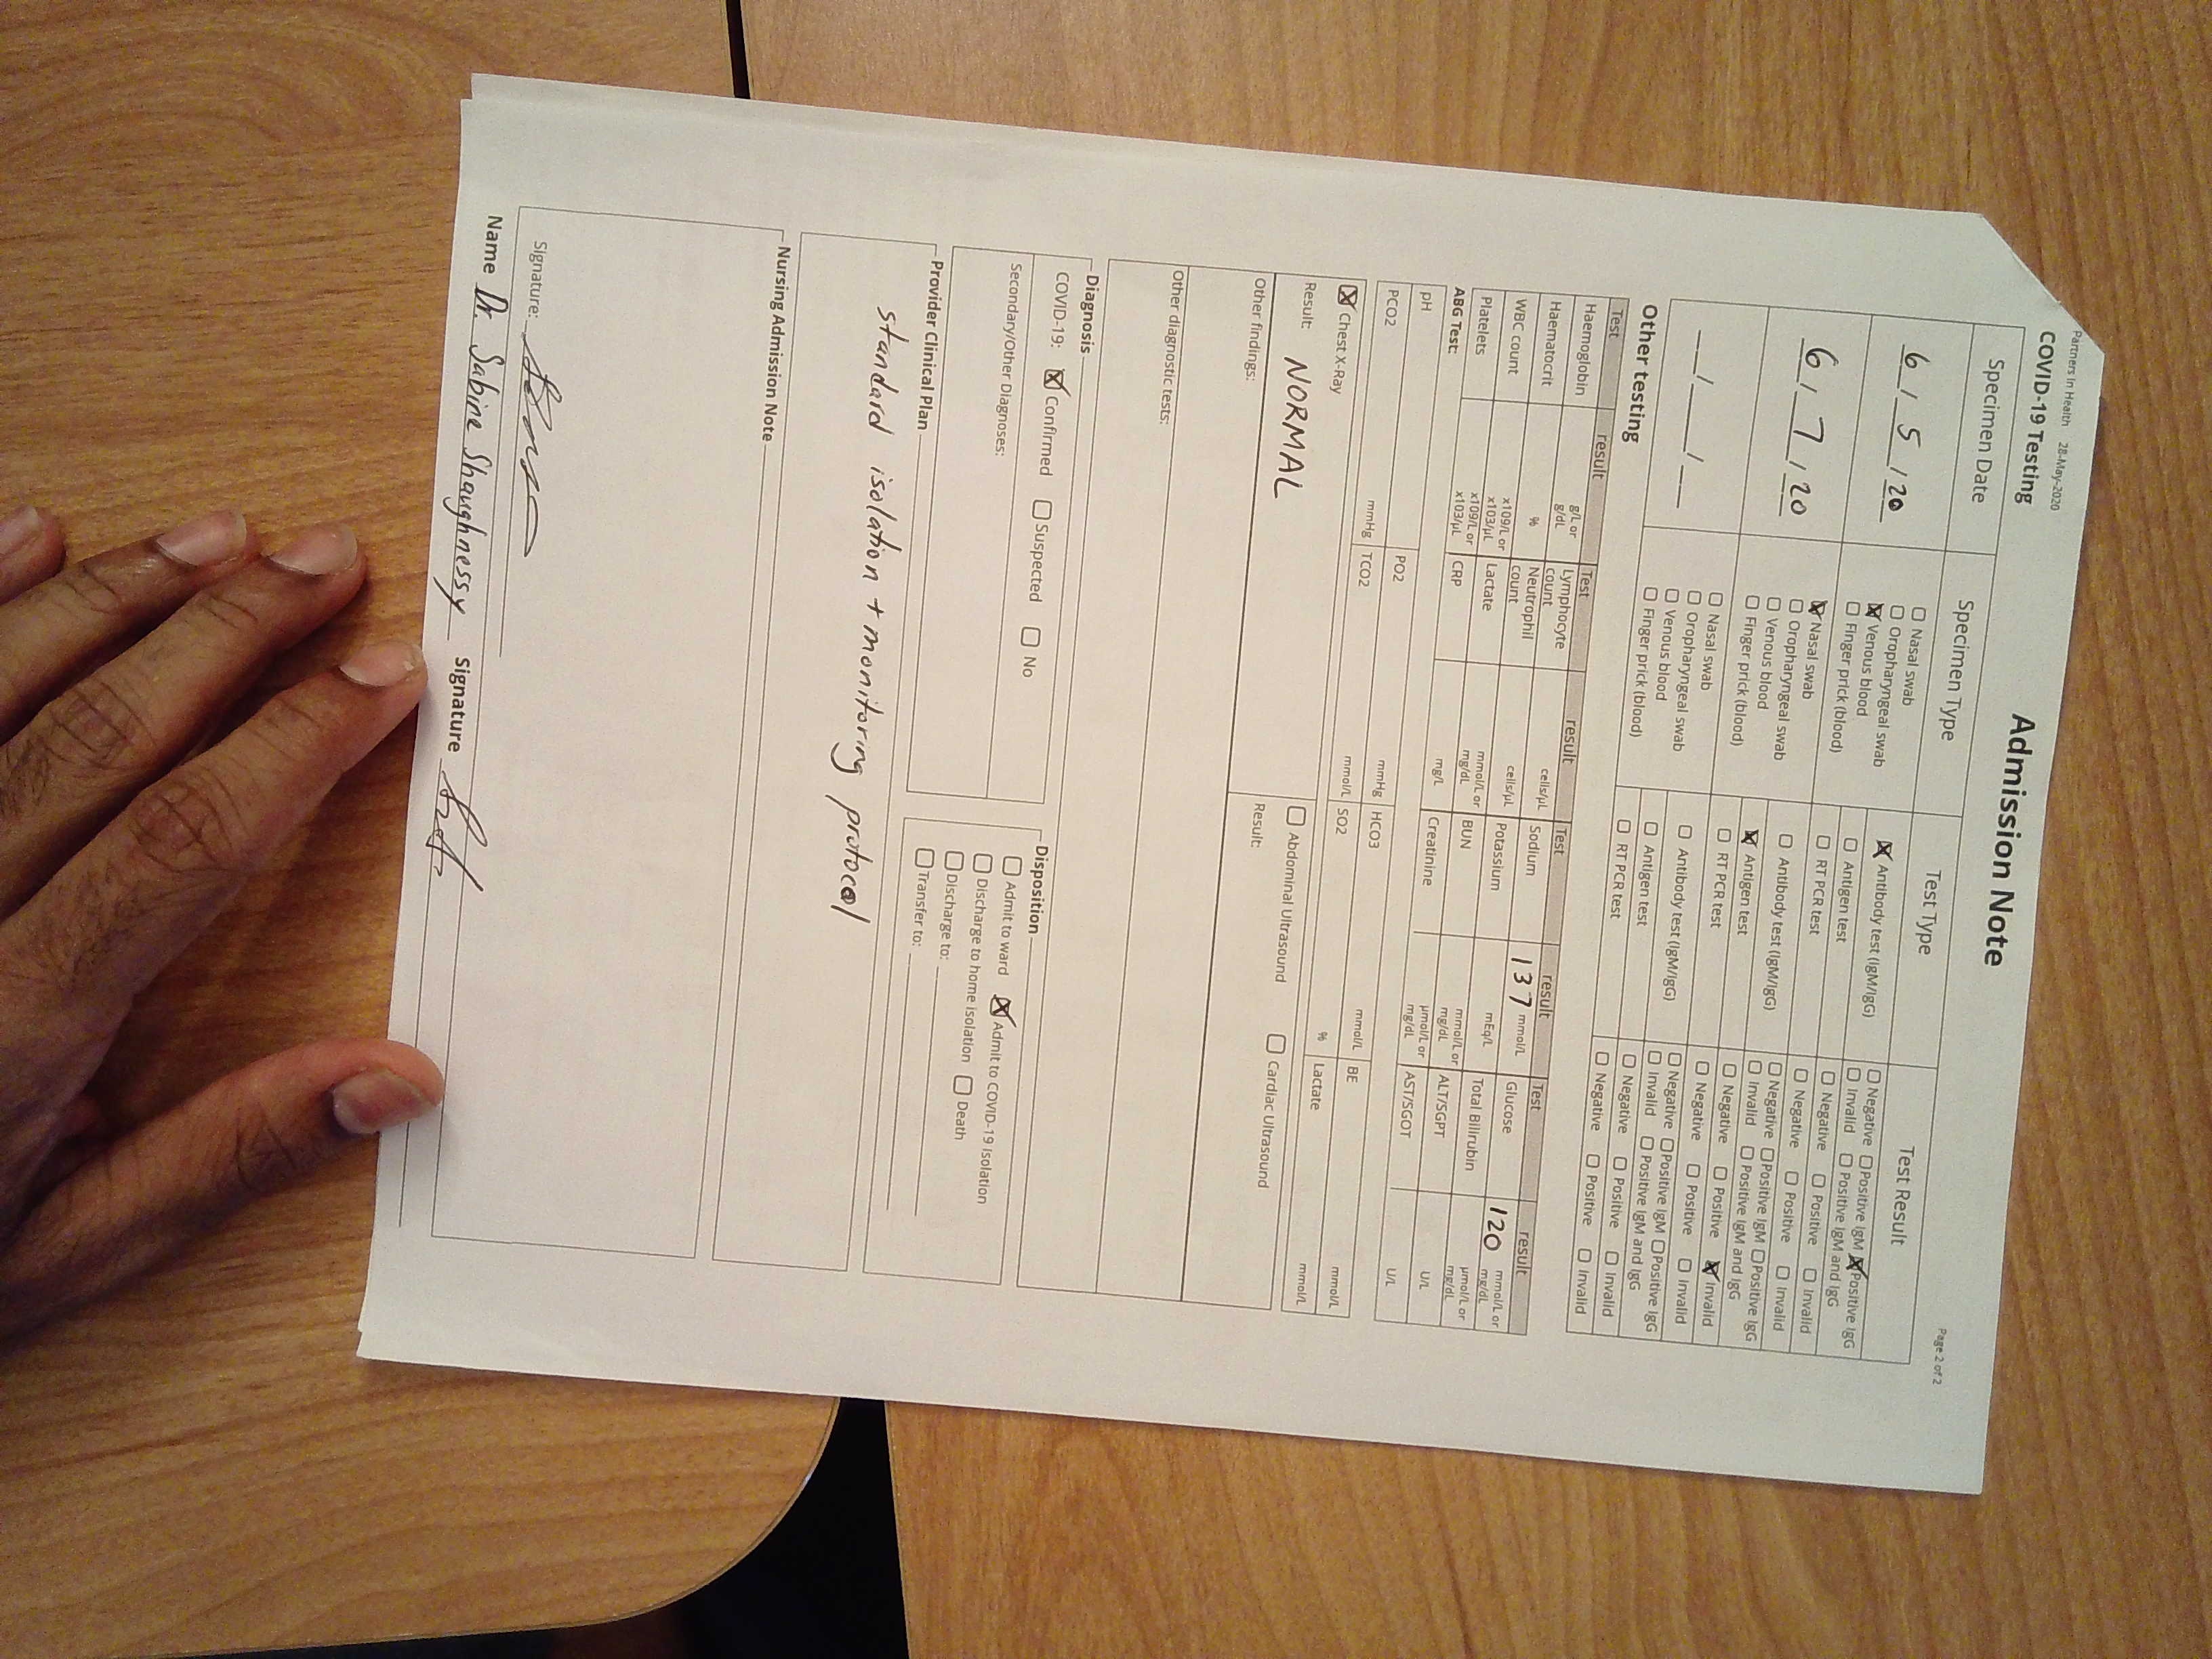 Partners In Health 28-May-2020
Admission Note
Page 2 of 2
COVID-19 Testing
Specimen Date Specimen Type Test Type Test Result
6 / 5 / 20
☐ Nasal swab
☐ Oropharyngeal swab
☒ Venous blood
☐ Finger prick (blood)
☒ Antibody test (IgM/IgG)
☐ Negative ☐ Positive IgM ☒ Positive IgG
☐ Invalid ☐ Positive IgM and IgG
☐ Antigen test ☐ Negative ☐ Positive ☐ Invalid
☐ RT PCR test ☐ Negative ☐ Positive ☐ Invalid
6 / 7 / 20
☒ Nasal swab
☐ Oropharyngeal swab
☐ Venous blood
☐ Finger prick (blood)
☐ Antibody test (IgM/IgG)
☐ Negative ☐ Positive IgM ☐ Positive IgG
☐ Invalid ☐ Positive IgM and IgG
☒ Antigen test ☐ Negative ☐ Positive ☒ Invalid
☐ RT PCR test ☐ Negative ☐ Positive ☐ Invalid
__/__/__
☐ Nasal swab
☐ Oropharyngeal swab
☐ Venous blood
☐ Finger prick (blood)
☐ Antibody test (IgM/IgG)
☐ Negative ☐ Positive IgM ☐ Positive IgG
☐ Invalid ☐ Positive IgM and IgG
☐ Antigen test ☐ Negative ☐ Positive ☐ Invalid
☐ RT PCR test ☐ Negative ☐ Positive ☐ Invalid
Other testing
Test result Test result Test result Test result
Haemoglobin g/L or g/dL Lymphocyte count cells/µL Sodium 137 mmol/L Glucose 120 mmol/L or mg/dL
Haematocrit % Neutrophil count cells/µL Potassium mEq/L Total Bilirubin µmol/L or mg/dL
WBC count x109/L or x103/µL Lactate mmol/L or mg/dL BUN mmol/L or mg/dL ALT/SGPT U/L
Platelets x109/L or x103/µL CRP mg/L Creatinine µmol/L or mg/dL AST/SGOT U/L
ABG Test:
pH PO2 mmHg HCO3 mmol/L BE mmol/L
PCO2 mmHg TCO2 mmol/L SO2 % Lactate mmol/L
☒ Chest X-Ray ☐ Abdominal Ultrasound ☐ Cardiac Ultrasound
Result: NORMAL Result:
Other findings:
Other diagnostic tests:
Diagnosis
COVID-19: ☒ Confirmed ☐ Suspected ☐ No
Secondary/Other Diagnoses:
Disposition
☐ Admit to ward ☒ Admit to COVID-19 Isolation
☐ Discharge to home isolation ☐ Death
☐ Discharge to:
☐ Transfer to:
Provider Clinical Plan
standard isolation + monitoring protocol
Nursing Admission Note
Signature:
Name Dr. Sabine Shaughnessy Signature